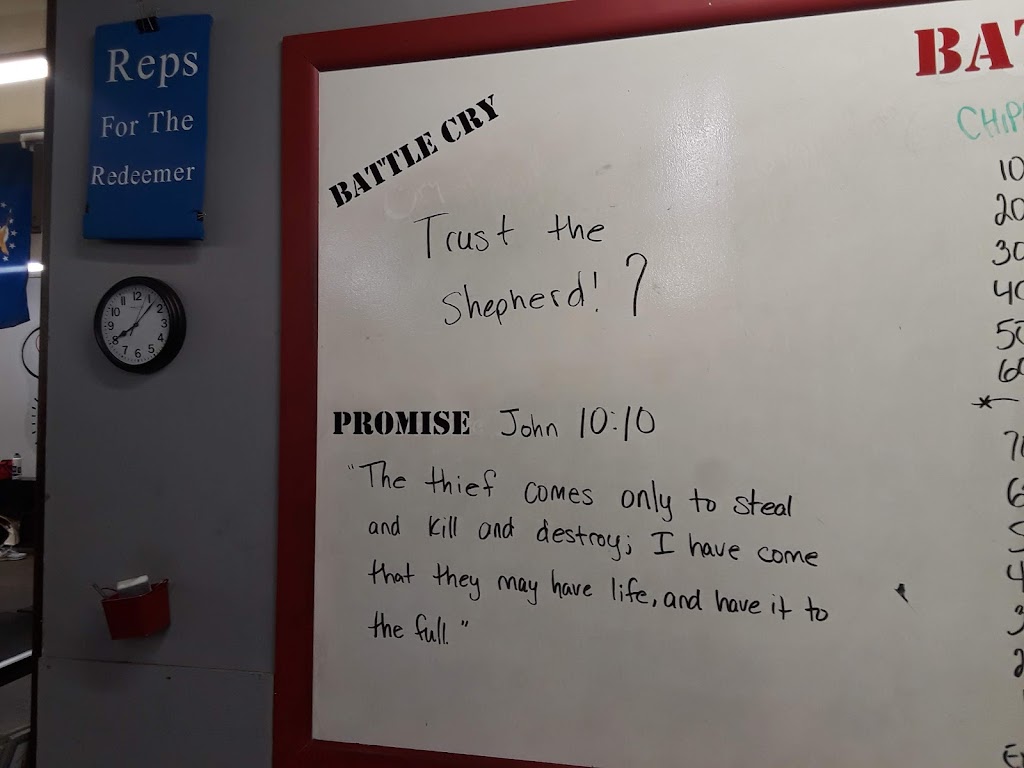 Reps
For The
Redeemer
BATTLE CRY
Trust the
Shepherd! ?
PROMISE John 10:10
"The thief comes only to steal
and kill and destroy; I have come
that they may have life, and have it to
the full."
12
1
2
3
4
5
6
7
8
9
10
11
BAT
CHIP
10
20
30
40
50
60
*